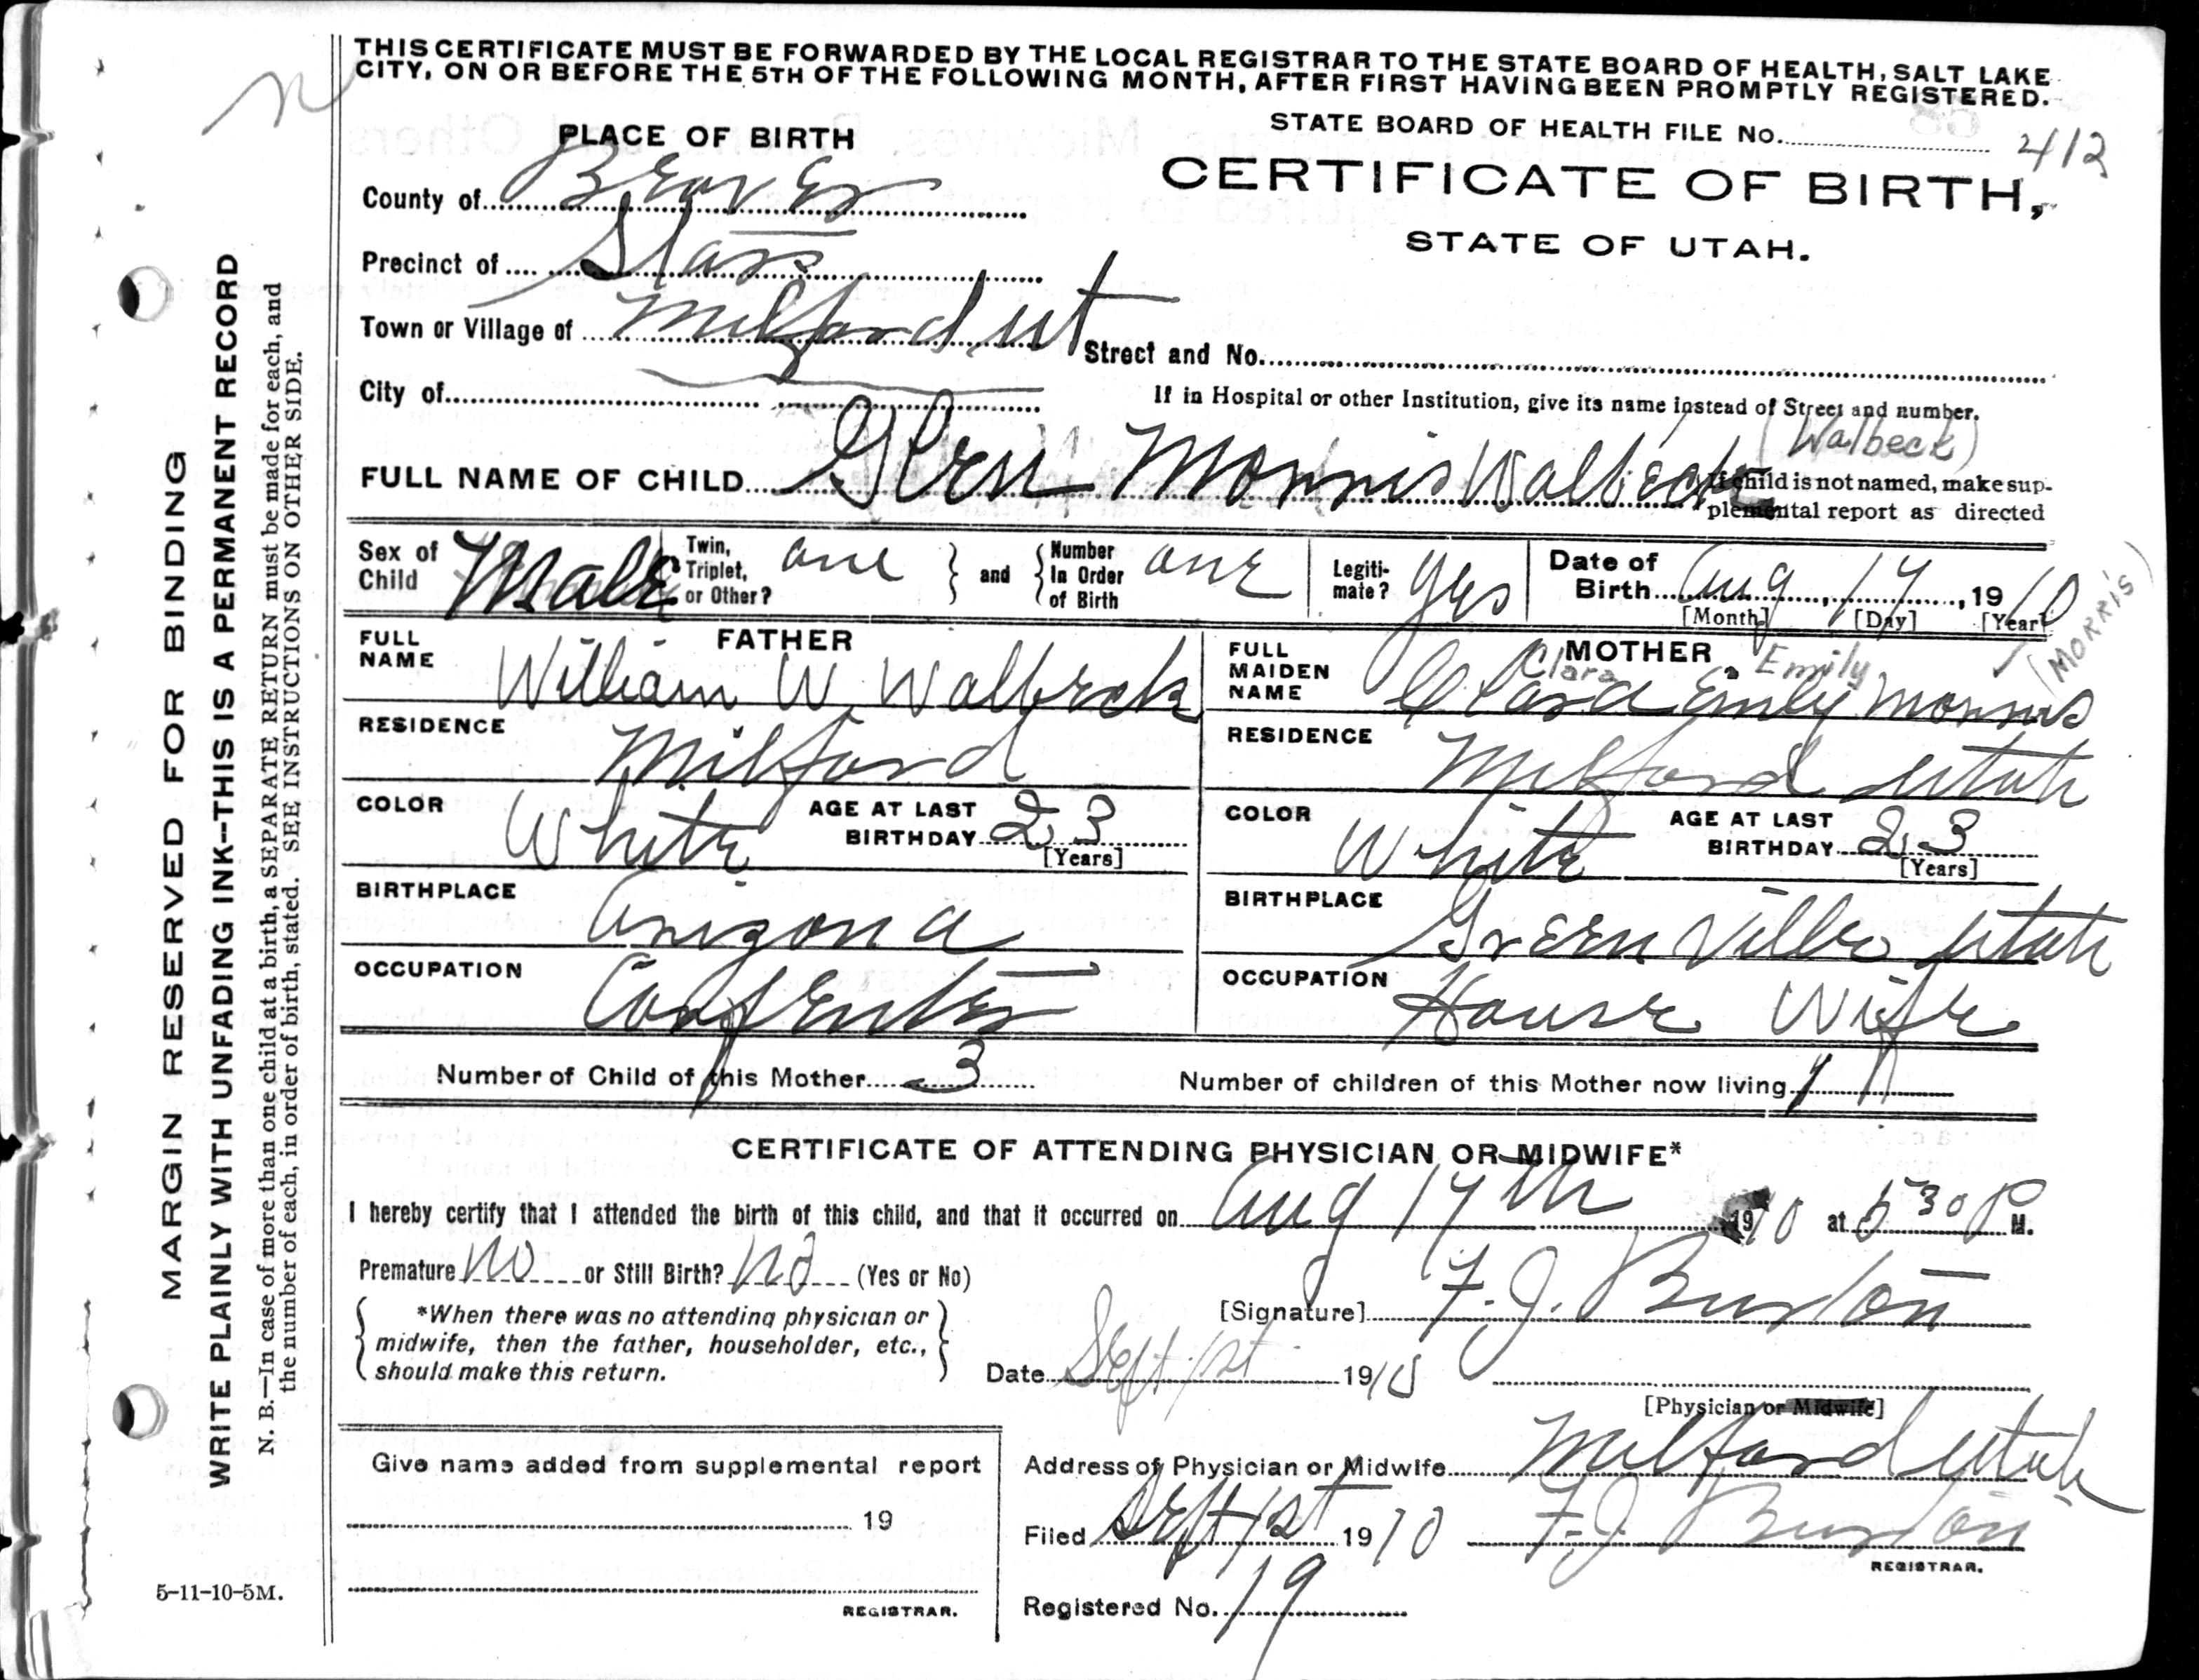 THIS CERTIFICATE MUST BE FORWARDED BY THE LOCAL REGISTRAR TO THE STATE BOARD OF HEALTH, SALT LAKE
CITY, ON OR BEFORE THE 5TH OF THE FOLLOWING MONTH, AFTER FIRST HAVING BEEN PROMPTLY REGISTERED.
STATE BOARD OF HEALTH FILE No. 412
PLACE OF BIRTH
CERTIFICATE OF BIRTH,
STATE OF UTAH.
County of Beaver
Precinct of
Town or Village of Milford Ut
Street and No.
City of
If in Hospital or other Institution, give its name instead of Street and number.
(Walbeck)
FULL NAME OF CHILD Glen Morris Walbeck
If child is not named, make sup-
plemental report as directed
Sex of Child Male
Twin, Triplet, or Other? one
and
Number In Order of Birth one
Legiti-mate? yes
Date of Birth Aug, 17, 1910
[Month] [Day] [Year]
(MORRIS)
FATHER
FULL NAME William W Walbeck
MOTHER
Clara Emily
FULL MAIDEN NAME Clara Emily Morris
RESIDENCE Milford
RESIDENCE Milford Utah
COLOR White
AGE AT LAST BIRTHDAY 23
[Years]
COLOR White
AGE AT LAST BIRTHDAY 23
[Years]
BIRTHPLACE Arizona
BIRTHPLACE Green Ville Utah
OCCUPATION Carpenter
OCCUPATION House Wife
Number of Child of this Mother 3
Number of children of this Mother now living
CERTIFICATE OF ATTENDING PHYSICIAN OR MIDWIFE*
I hereby certify that I attended the birth of this child, and that it occurred on Aug 17th 1910 at 5 30 P M.
Premature No or Still Birth? No (Yes or No)
*When there was no attending physician or
midwife, then the father, householder, etc.,
should make this return.
[Signature] F. J. Burton
Date Sept 1st 1910
[Physician or Midwife]
Address of Physician or Midwife Milford Utah
Give name added from supplemental report
19
REGISTRAR.
Filed Sept 1st 1910 F. J. Burton
REGISTRAR.
Registered No. 19
5-11-10-5M.
MARGIN RESERVED FOR BINDING
WRITE PLAINLY WITH UNFADING INK--THIS IS A PERMANENT RECORD
N. B.—In case of more than one child at a birth, a SEPARATE RETURN must be made for each, and
the number of each, in order of birth, stated. SEE INSTRUCTIONS ON OTHER SIDE.